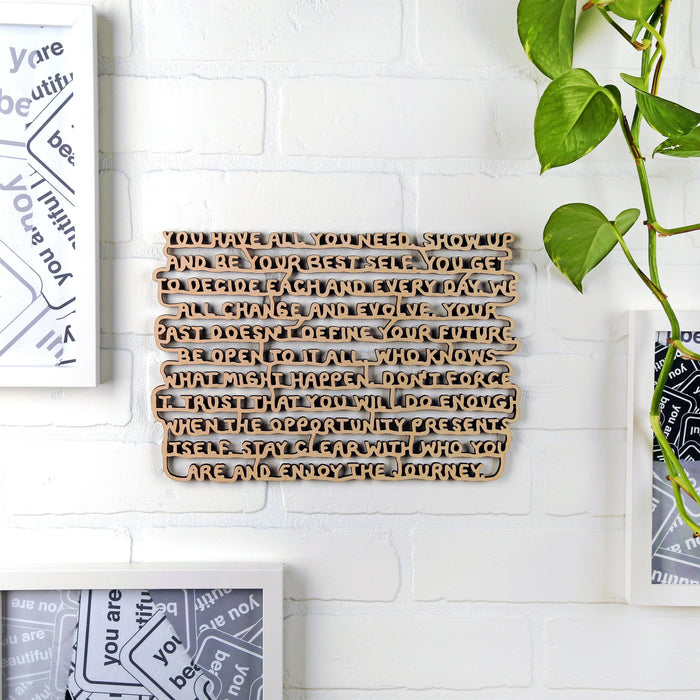 YOU HAVE ALL YOU NEED. SHOW UP
AND BE YOUR BEST SELF. YOU GET
TO DECIDE EACH AND EVERY DAY. WE
ALL CHANGE AND EVOLVE. YOUR
PAST DOESN'T DEFINE YOUR FUTURE.
BE OPEN TO IT ALL. WHO KNOWS
WHAT MIGHT HAPPEN. DON'T FORCE
IT. TRUST THAT YOU WILL DO ENOUGH
WHEN THE OPPORTUNITY PRESENTS
ITSELF. STAY CLEAR WITH WHO YOU
ARE AND ENJOY THE JOURNEY.
you are
beautiful
you are
you are
beautiful
you are